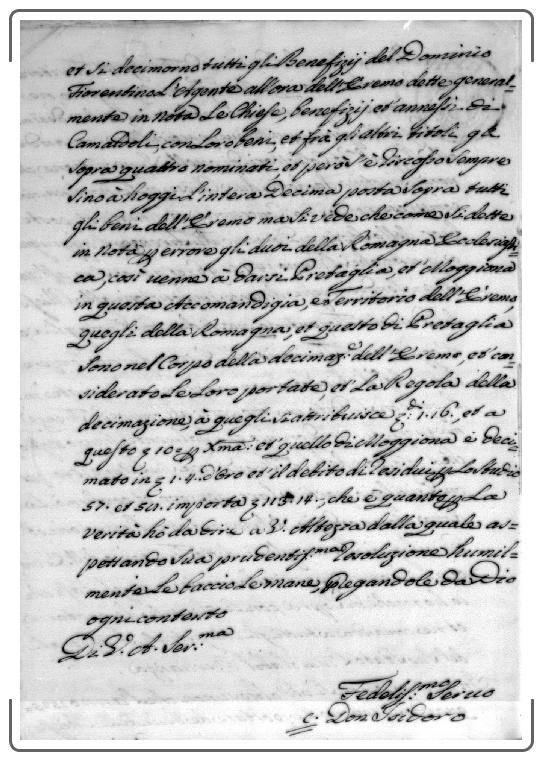 et si decimorno tutti gli Benefizij del Dominio
Fiorentino L'Agente all'ora dell'Eremo dette general=
mente in nota Le Chiese, benefizij et annessi di
Camaldoli, con Loro beni, et frà gli altri titoli
sopra quattro nominati, et però s'è riscosso sempre
sino à hoggi l'intera Decima posta sopra tutti
gli beni dell'Eremo ma si vede che come si dette
in nota errore gli duoi della Romagna Ecclesiasti=
ca, così uenne à darsi Pretaglia, et Moggiona
in questa Accomandigia, e Territorio dell'Eremo,
quegli della Romagna, et questo di Pretaglia
sono nel Corpo della decimaz.e dell'Eremo, et con=
siderato Le Loro portate, et La Regola della
decimazione, à quegli si attribuisce 1.16., et a
questo 10 Xma: et quello di Moggiona è deci=
mato in 1.4. d'Oro et il debito di residui Lo studio
57. et 58. importa 113.14., che è quanto La
verità hò da dire a V. Altezza dalla quale as=
pettando sua prudentiss.ma Resoluzione humil=
mente Le baccio Le mane, pregandole da Dio
ogni contento
Di V. A. Ser.ma
Fedeliss.mo Seruo
Don Isidoro